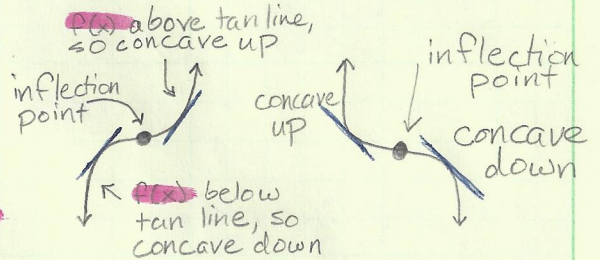 f(x) above tan line,
so concave up
inflection
point
f(x) below
tan line, so
concave down
concave
up
inflection
point
concave
down